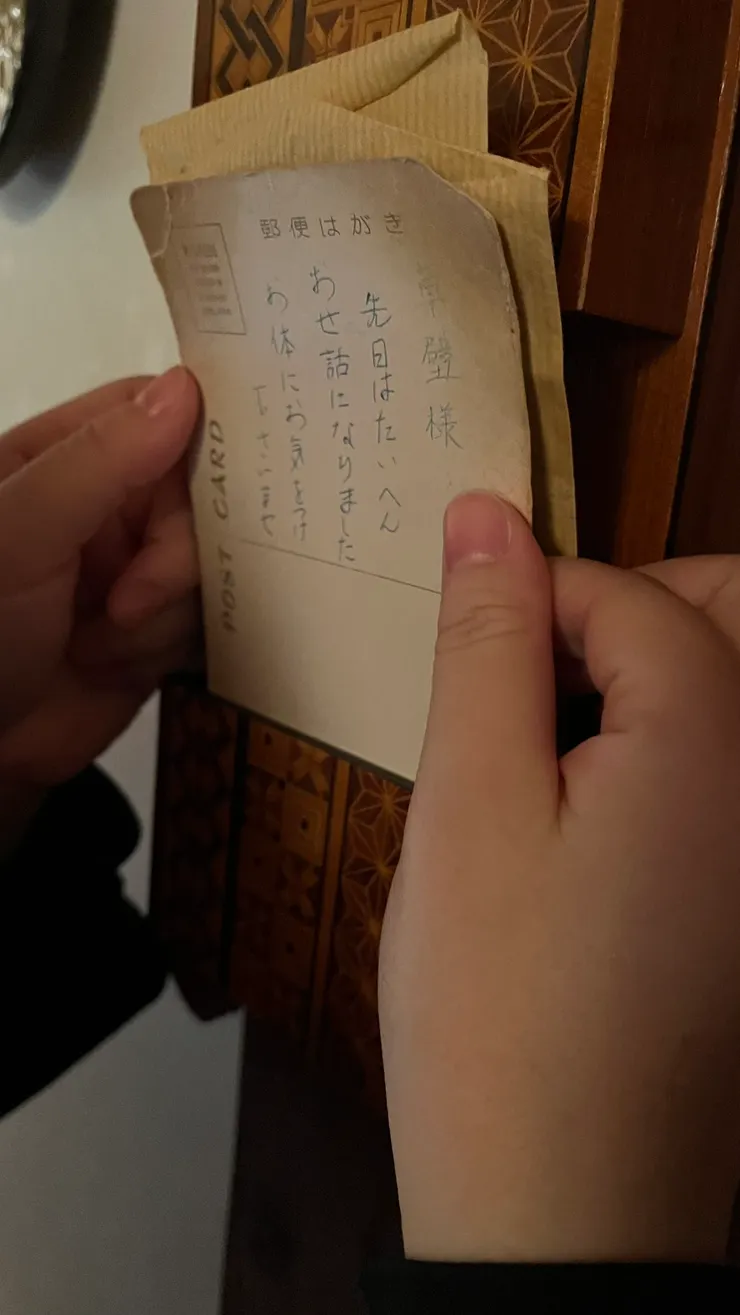 郵便はがき
草壁様
先日はたいへん
おせ話になりました
お体にお気をつけ
下さいませ
POST CARD